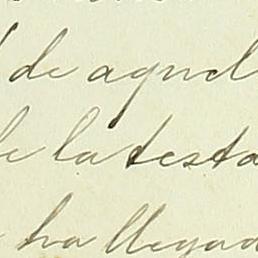 de aquel
de la testa
ha llegad